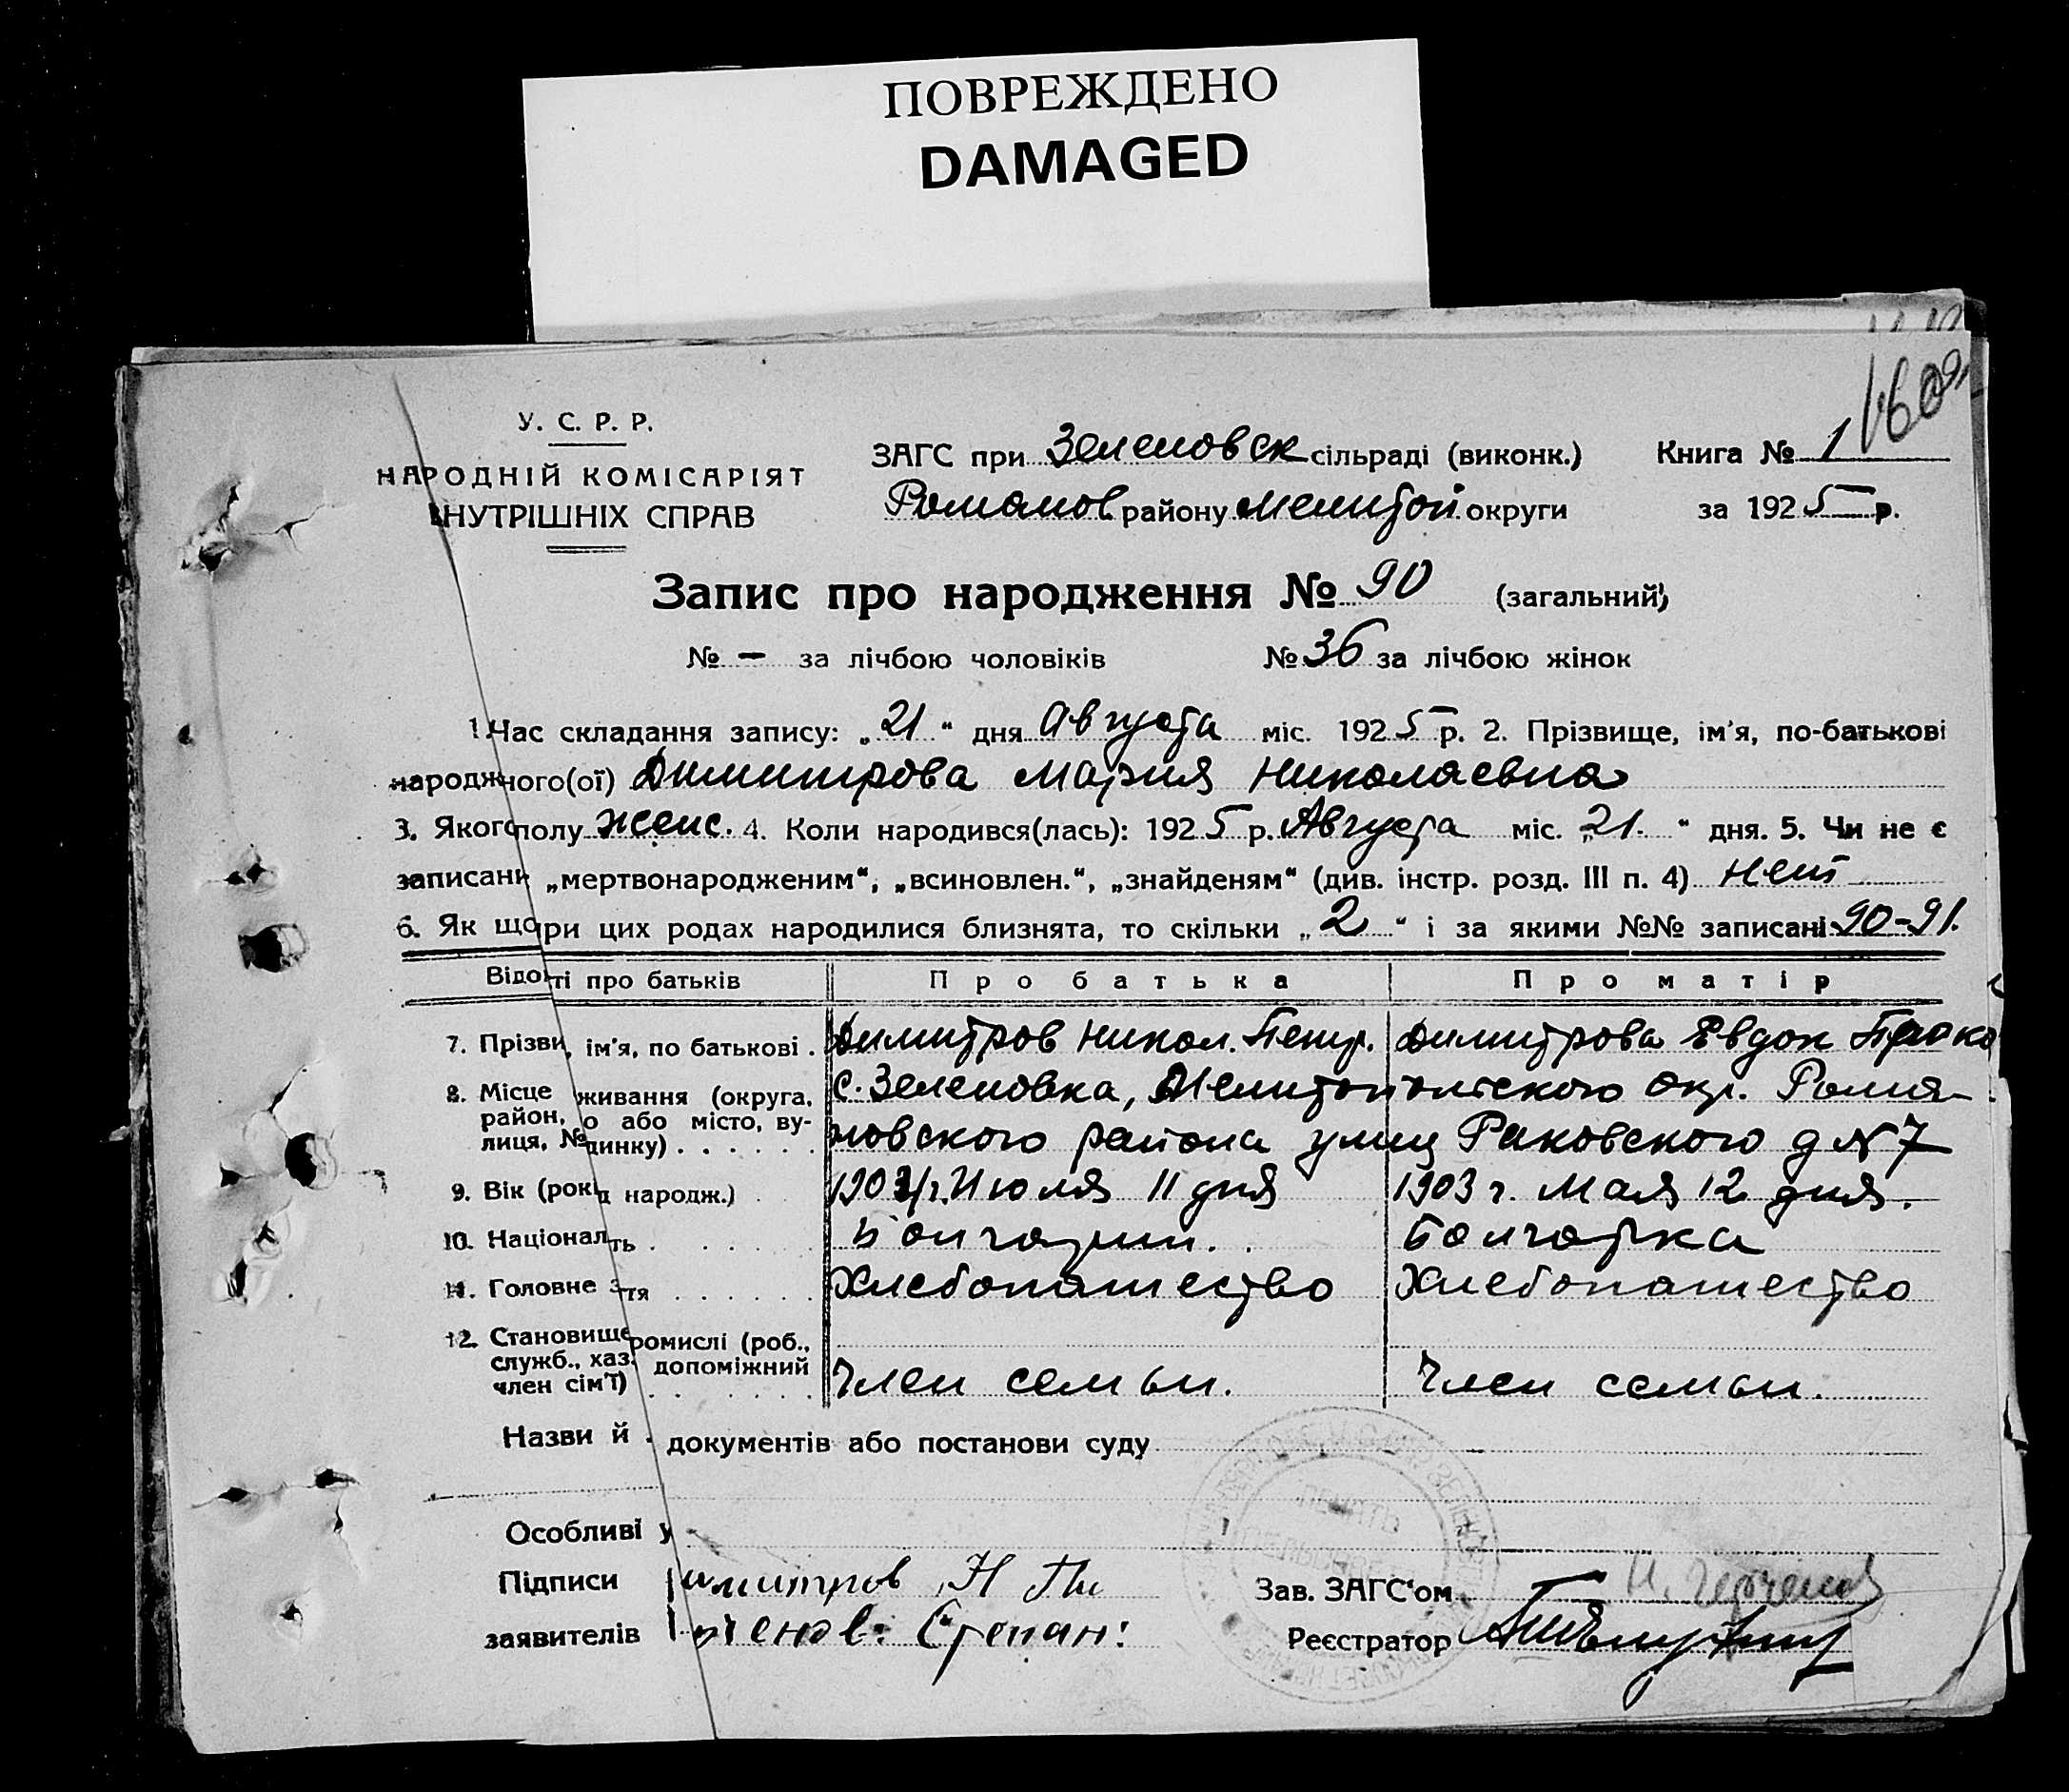 ПОВРЕЖДЕНО
DAMAGED
У. С. Р. Р.
НАРОДНІЙ КОМІСАРІЯТ
ВНУТРІШНІХ СПРАВ
ЗАГС при Зеленовск сільраді (виконк.) Книга № 1
Романов району Мелитоп округи за 1925 р.
Запис про народження № 90 (загальний)
№ - за лічбою чоловіків № 36 за лічбою жінок
1. Час складання запису: „21“ дня Августа міс. 1925 р. 2. Прізвище, ім'я, по-батькові
народж ного(ої) Димитрова Мария Николаевна
3. Якого полу женс. 4. Коли народився(лась): 1925 р. Августа міс. „21.“ дня. 5. Чи не є
записани „мертвонародженим“, „всиновлен.“, „знайденям“ (див. інстр. розд. III п. 4) Нет
6. Як що ри цих родах народилися близнята, то скільки „2“ і за якими №№ записані 90-91.
Відо ті про батьків Про батька Про матір
7. Прізви , ім'я, по батькові . Димитров Никол. Петр. Димитрова Евдок
8. Місце живання (округа, с. Зеленовка, Мелитопольского окр. Рома-
район, о або місто, ву-
лиця, № динку) . . . . . . новского района улиц Раковского д № 7
9. Вік (рок д народж.) Июля 11 дня 1903 г. Мая 12 дня.
10. Націонал ть . Болгарин. Болгарка
11. Головне з тя . . . . . . Хлебопашество Хлебопашество
12. Становище ромислі (роб.,
служб., хаз. допоміжний
член сім'ї) Член семьи. Член семьи.
Назви й документів або постанови суду
Особливі у
Підписи имитров Н
Зав. ЗАГС'ом
заявителів Степан:
Реєстратор